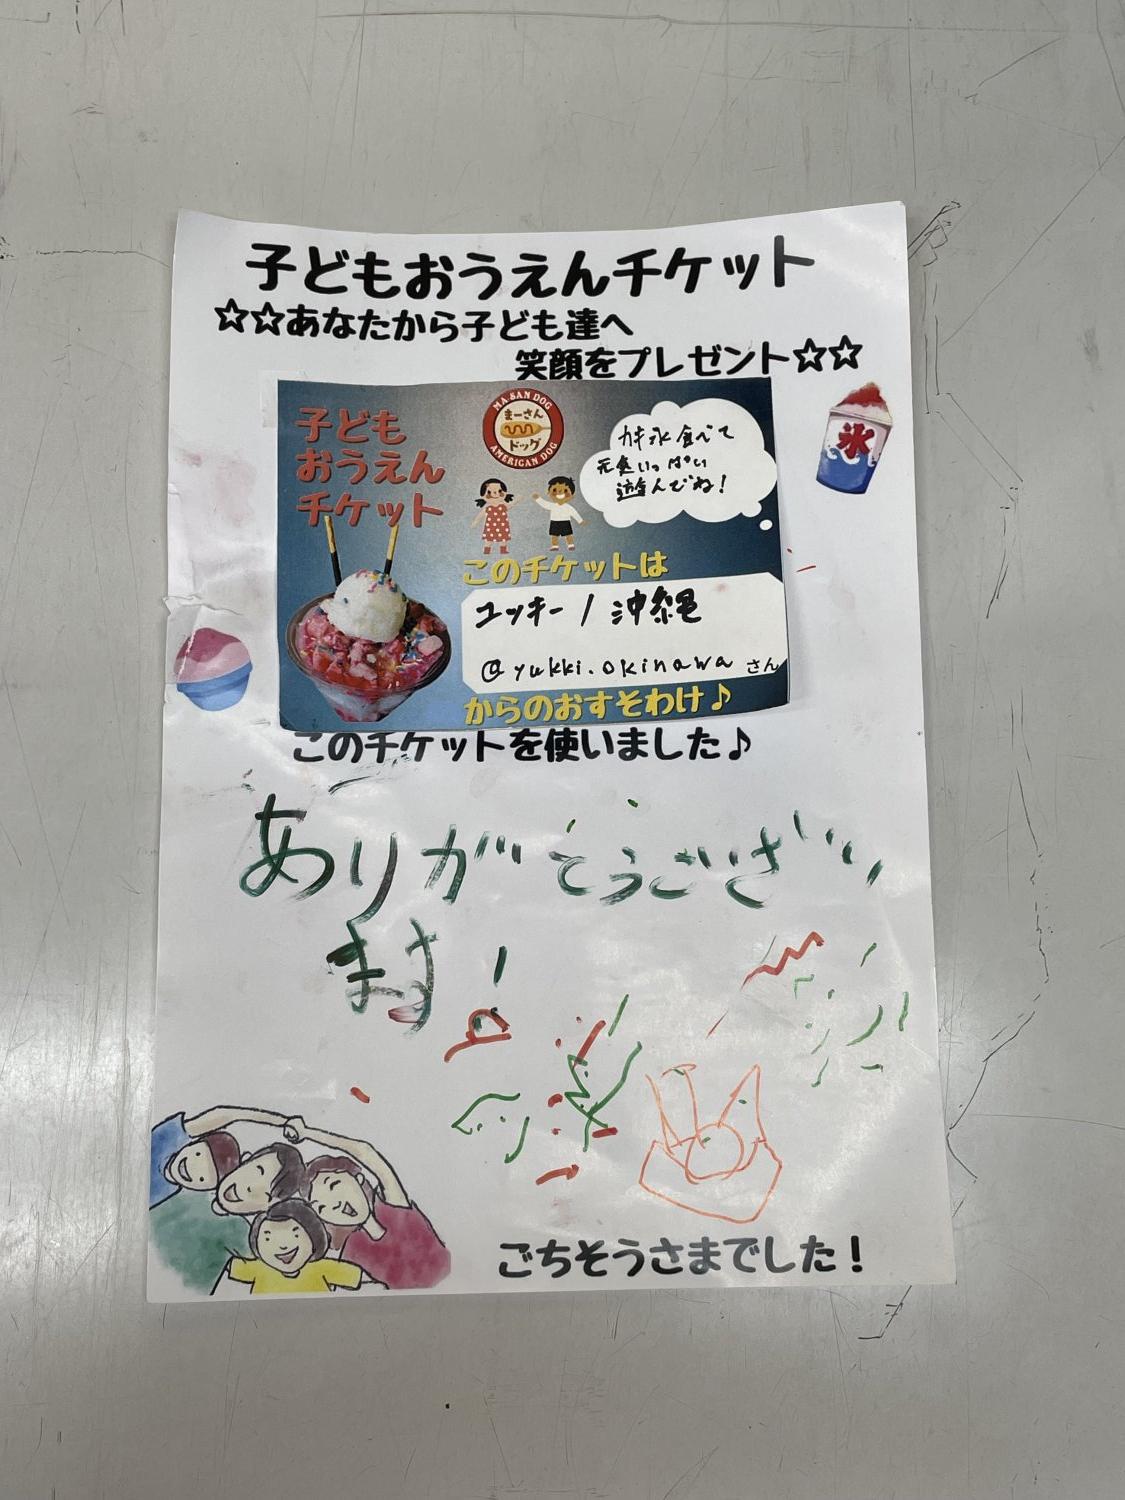 子どもおうえんチケット
☆☆あなたから子ども達へ
笑顔をプレゼント☆☆
子ども
おうえん
チケット
MA-SAN DOG
まーさん
ドッグ
AMERICAN DOG
カキ氷食べて
元気いっぱい
遊んでね!
氷
このチケットは
ユッキー / 沖縄
@yukki.okinawa さん
からのおすそわけ♪
このチケットを使いました♪
ありがとうござい
ます!
ごちそうさまでした!